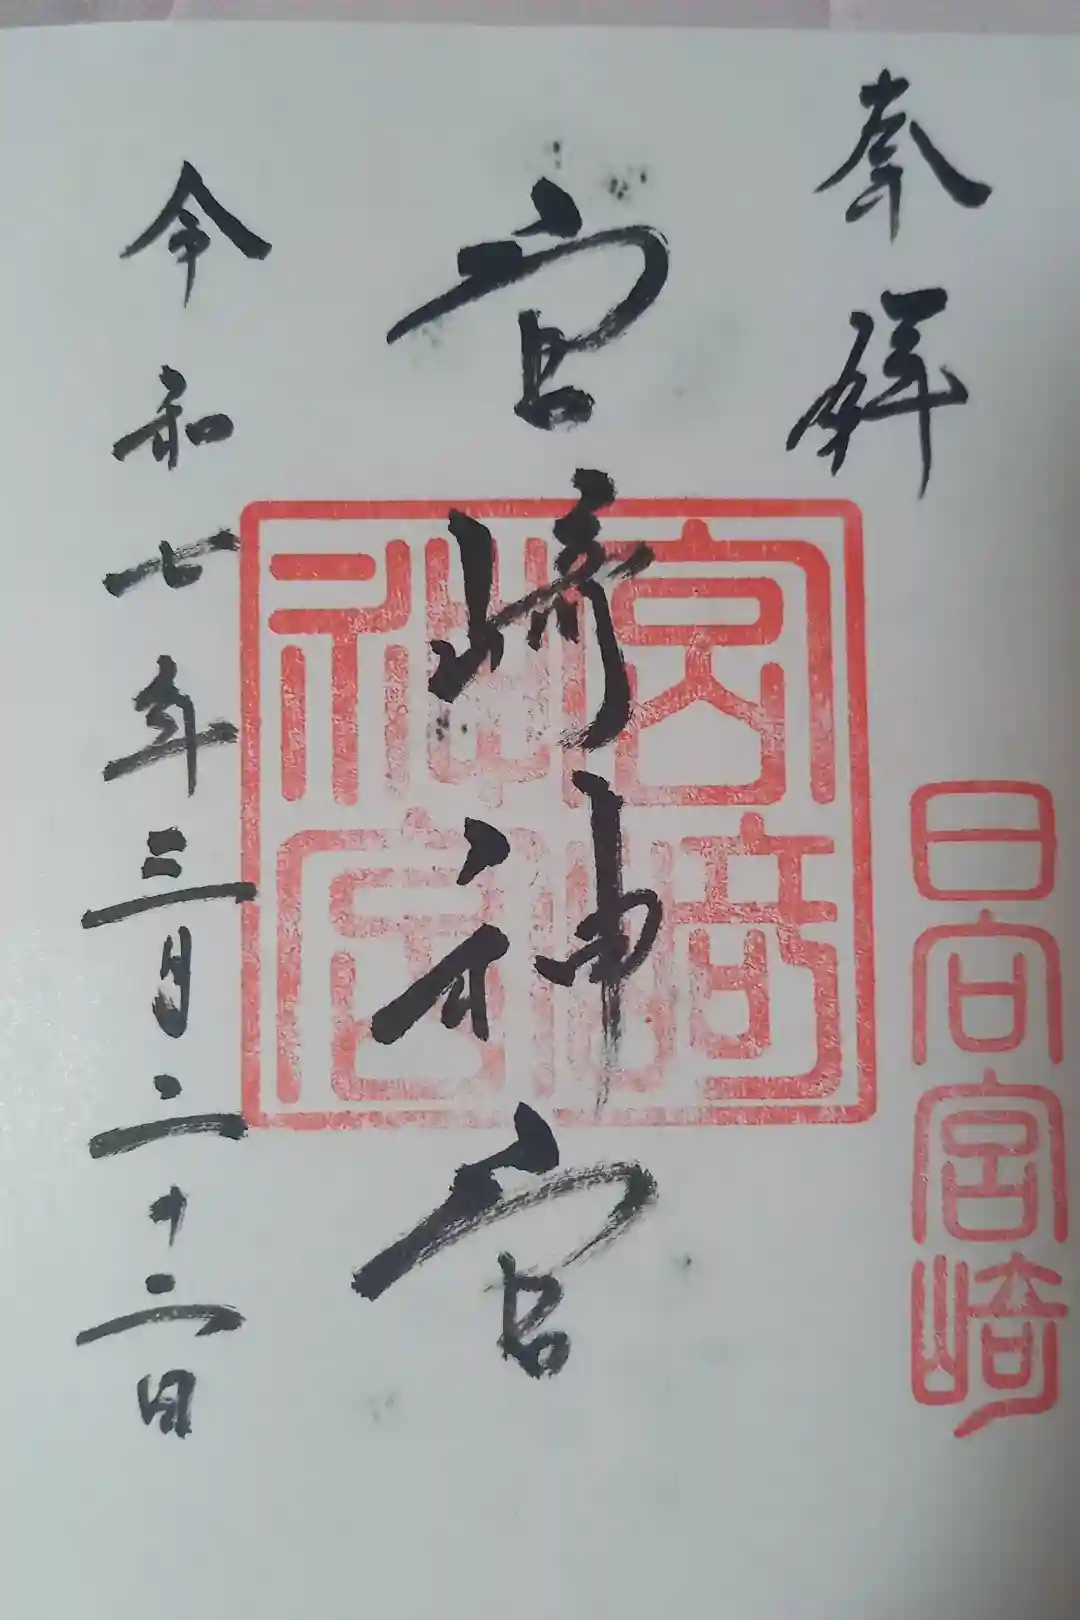 奉拝
日向宮崎
宮崎神宮
宮崎神宮
令和七年三月二十二日